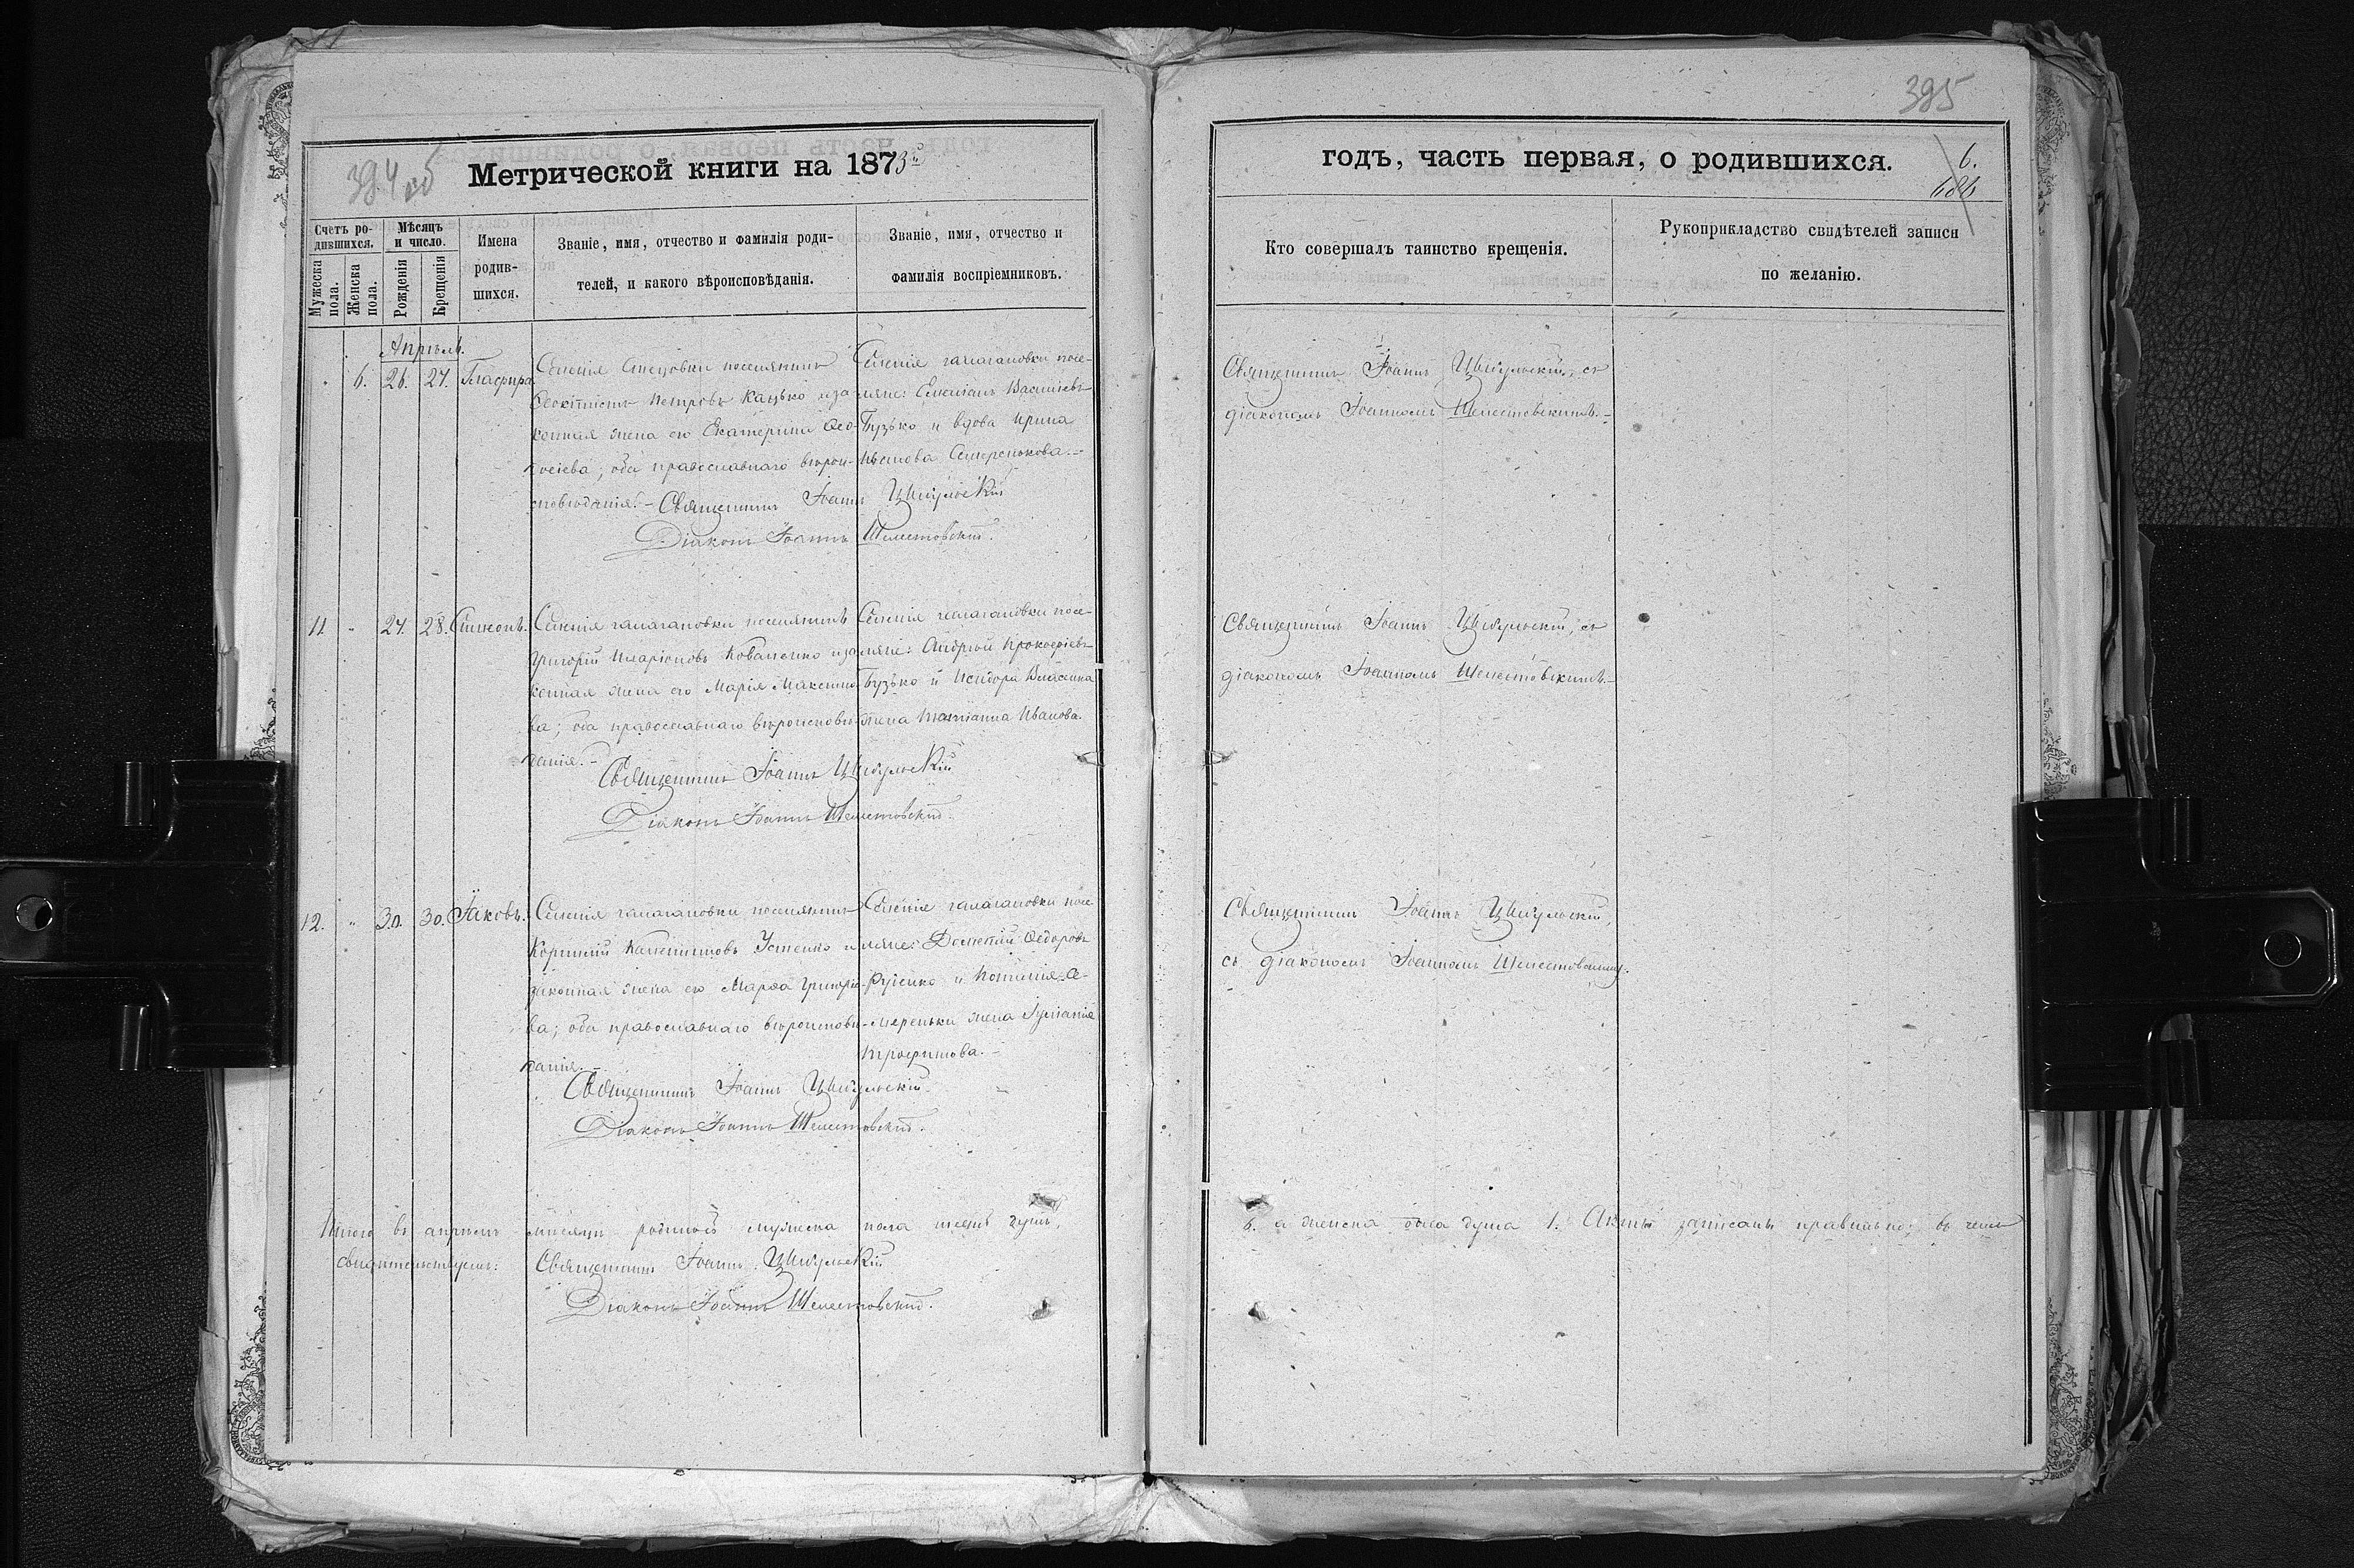 395
394 об
Метрической книги на 1873й
годъ, часть первая, о родившихся.
6.
Счетъ ро-
дившихся.
Мѣсяцъ
и число.
Мужеска
пола.
Женска
пола.
Рожденія
Крещенія
Имена
родив-
шихся.
Званіе, имя, отчество и фамилія роди-
телей, и какого вѣроисповѣданія.
Званіе, имя, отчество и
фамилія воспріемниковъ.
Кто совершалъ таинство крещенія.
Рукоприкладство свидѣтелей записи
по желанію.
Апрѣль.
6. 26. 27. Гласфира
Селенія поселянинъ
Ѳеоктистъ Петровъ Кацько и за-
конная жена его Екатерина Ѳео-
; оба православнаго вѣрои-
сповѣданія. – Священникъ Іоаннъ Цыбульскій
Діаконъ Іоаннъ Шелестовскій.
Селенія галагановки посе-
ляне: Емеліанъ Васильевъ
Бузько и вдова Ирина
Священникъ Іоаннъ Цыбульскій, съ
діакономъ Іоанномъ Шелестовскимъ. –
11 " 27. 28. Симеонъ.
Селенія галагановки поселянинъ
Григорій Иларіоновъ Коваленко и за-
конная жена его Марія Максимо-
ва; оба православнаго вѣроисповѣ-
данія. –
Священникъ Іоаннъ Цыбульскій
Діаконъ Іоаннъ Шелестовскій.
Селенія галагановки посе-
ляне: Андрей Прокофіевъ
Бузько и Исидора Власенка
жена Татіанна Иванова.
Священникъ Іоаннъ Цыбульскій, съ
діакономъ Іоанномъ Шелестовскимъ. –
12. " 30. 30. Іаковъ.
Селенія галагановки поселянинъ
Корнилій Устенко и
законная жена его Марѳа Григорье-
ва; оба православнаго вѣроисповѣ-
данія. –
Священникъ Іоаннъ Цыбульскій
Діаконъ Іоаннъ Шелестовскій.
Селенія галагановки посе
ляне: Ѳедоровъ
Руденко и
жена Іуліанія
Трофимова. –
Священникъ Іоаннъ Цыбульскій,
съ діакономъ Іоанномъ Шелестовскимъ.
Итого въ апрѣлѣ мѣсяцѣ родилось мужеска пола шесть душъ,
6. а женска одна душа 1. Акты записаны правильно; въ чемъ
свидѣтельствуемъ: Священникъ Іоаннъ Цыбульскій
Діаконъ Іоаннъ Шелестовскій.